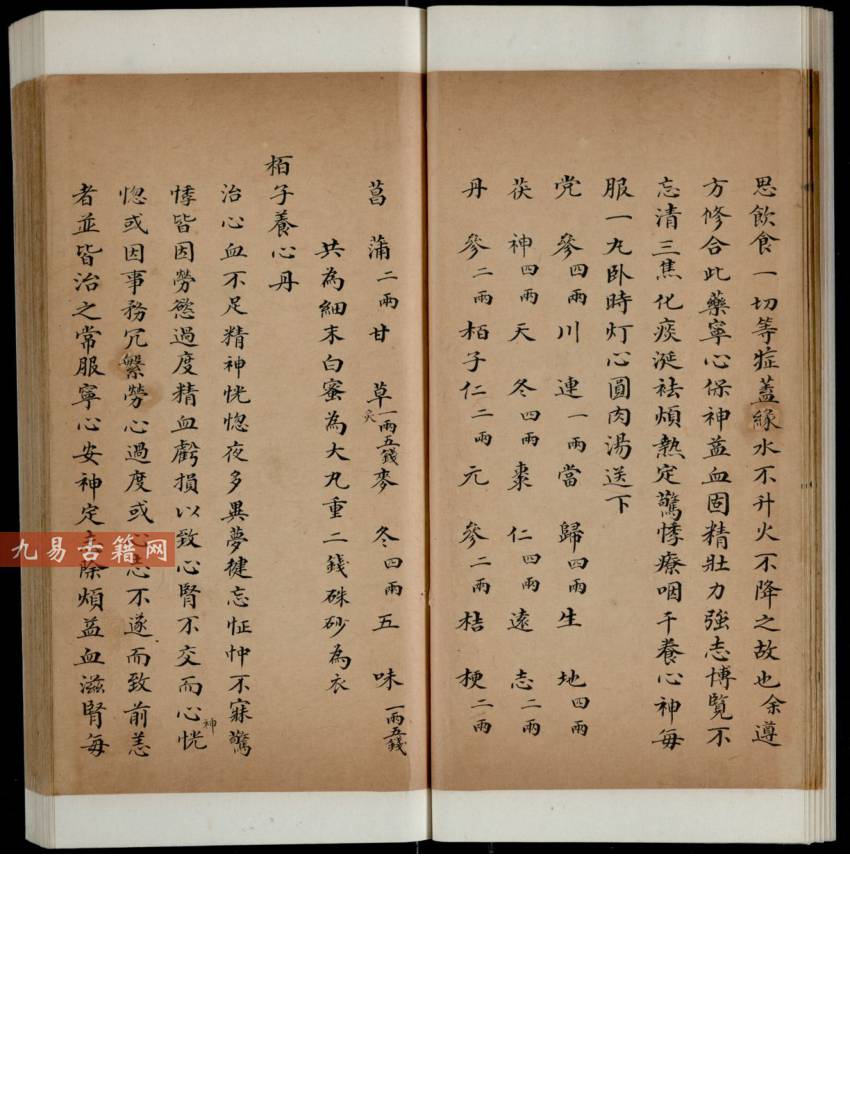 思飲食一切等症蓋緣水不升火不降之故也余遵
方修合此藥寧心保神益血固精壯力強志博覽不
忘清三焦化痰涎祛煩熱定驚悸療咽干養心神每
服一九卧時灯心圓肉湯送下
党參四兩川連一兩當歸四兩生地四兩
茯神四兩天冬四兩棗仁四兩遠志二兩
丹參二兩栢子仁二兩元參二兩桔梗二兩
菖蒲二兩甘草一兩五錢灸麥冬四兩五味一兩五錢
共為細末白蜜為大丸重二錢硃砂為衣
栢子養心丹
治心血不足精神恍惚夜多異夢健忘怔忡不寐驚
悸皆因勞慾過度精血虧損以致心腎不交而心神恍
惚或因事務冗繁勞心過度或心志不遂而致前恙
者並皆治之常服寧心安神定除煩益血滋腎每
九易古籍网